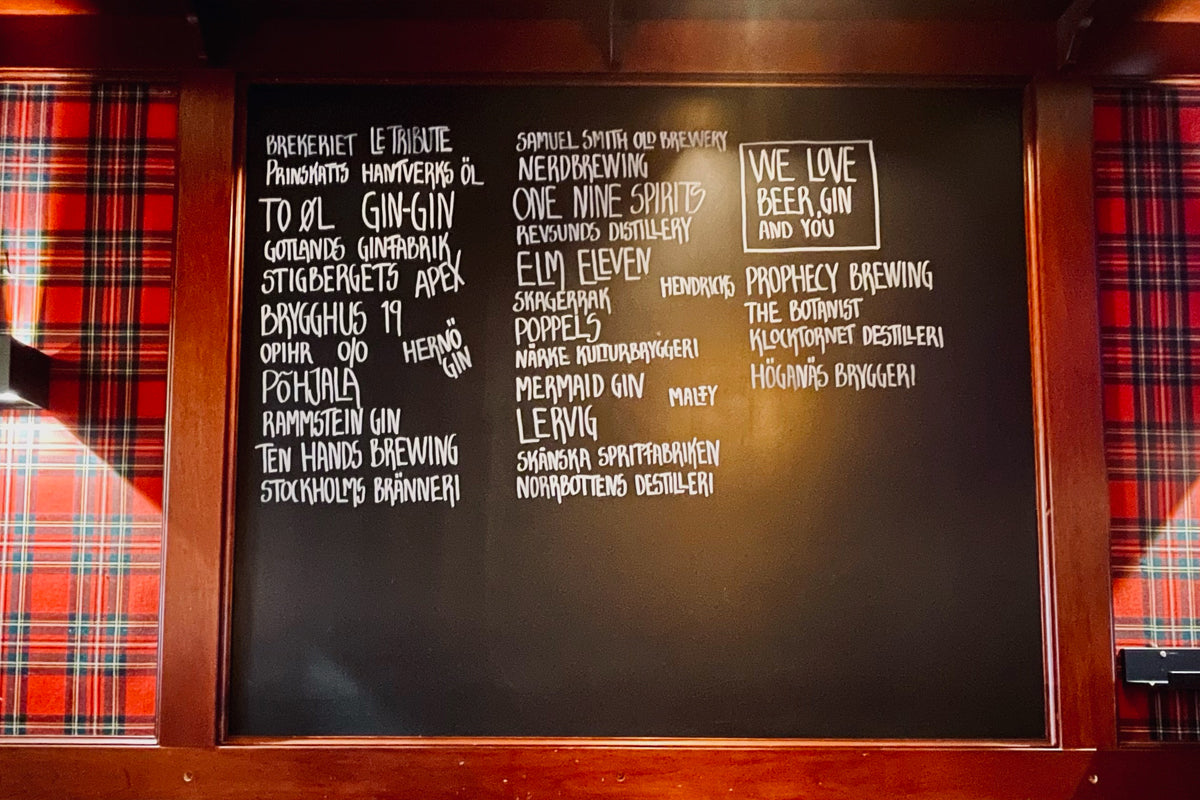 BREKERIET LE TRIBUTE
PRINSKATTS HANTVERKS ÖL
TO ØL GIN-GIN
GOTLANDS GINFABRIK
STIGBERGETS APEX
BRYGGHUS 19
OPIHR O/O HERNÖ GIN
PÕHJALA
RAMMSTEIN GIN
TEN HANDS BREWING
STOCKHOLMS BRÄNNERI
SAMUEL SMITH OLD BREWERY
NERDBREWING
ONE NINE SPIRITS
REVSUNDS DISTILLERY
ELM ELEVEN
SKAGERRAK HENDRICKS
POPPELS
NÄRKE KULTURBRYGGERI
MERMAID GIN MALTY
LERVIG
SKÅNSKA SPRITFABRIKEN
NORRBOTTENS DESTILLERI
WE LOVE
BEER, GIN
AND YOU
PROPHECY BREWING
THE BOTANIST
KLOCKTORNET DESTILLERI
HÖGANÄS BRYGGERI